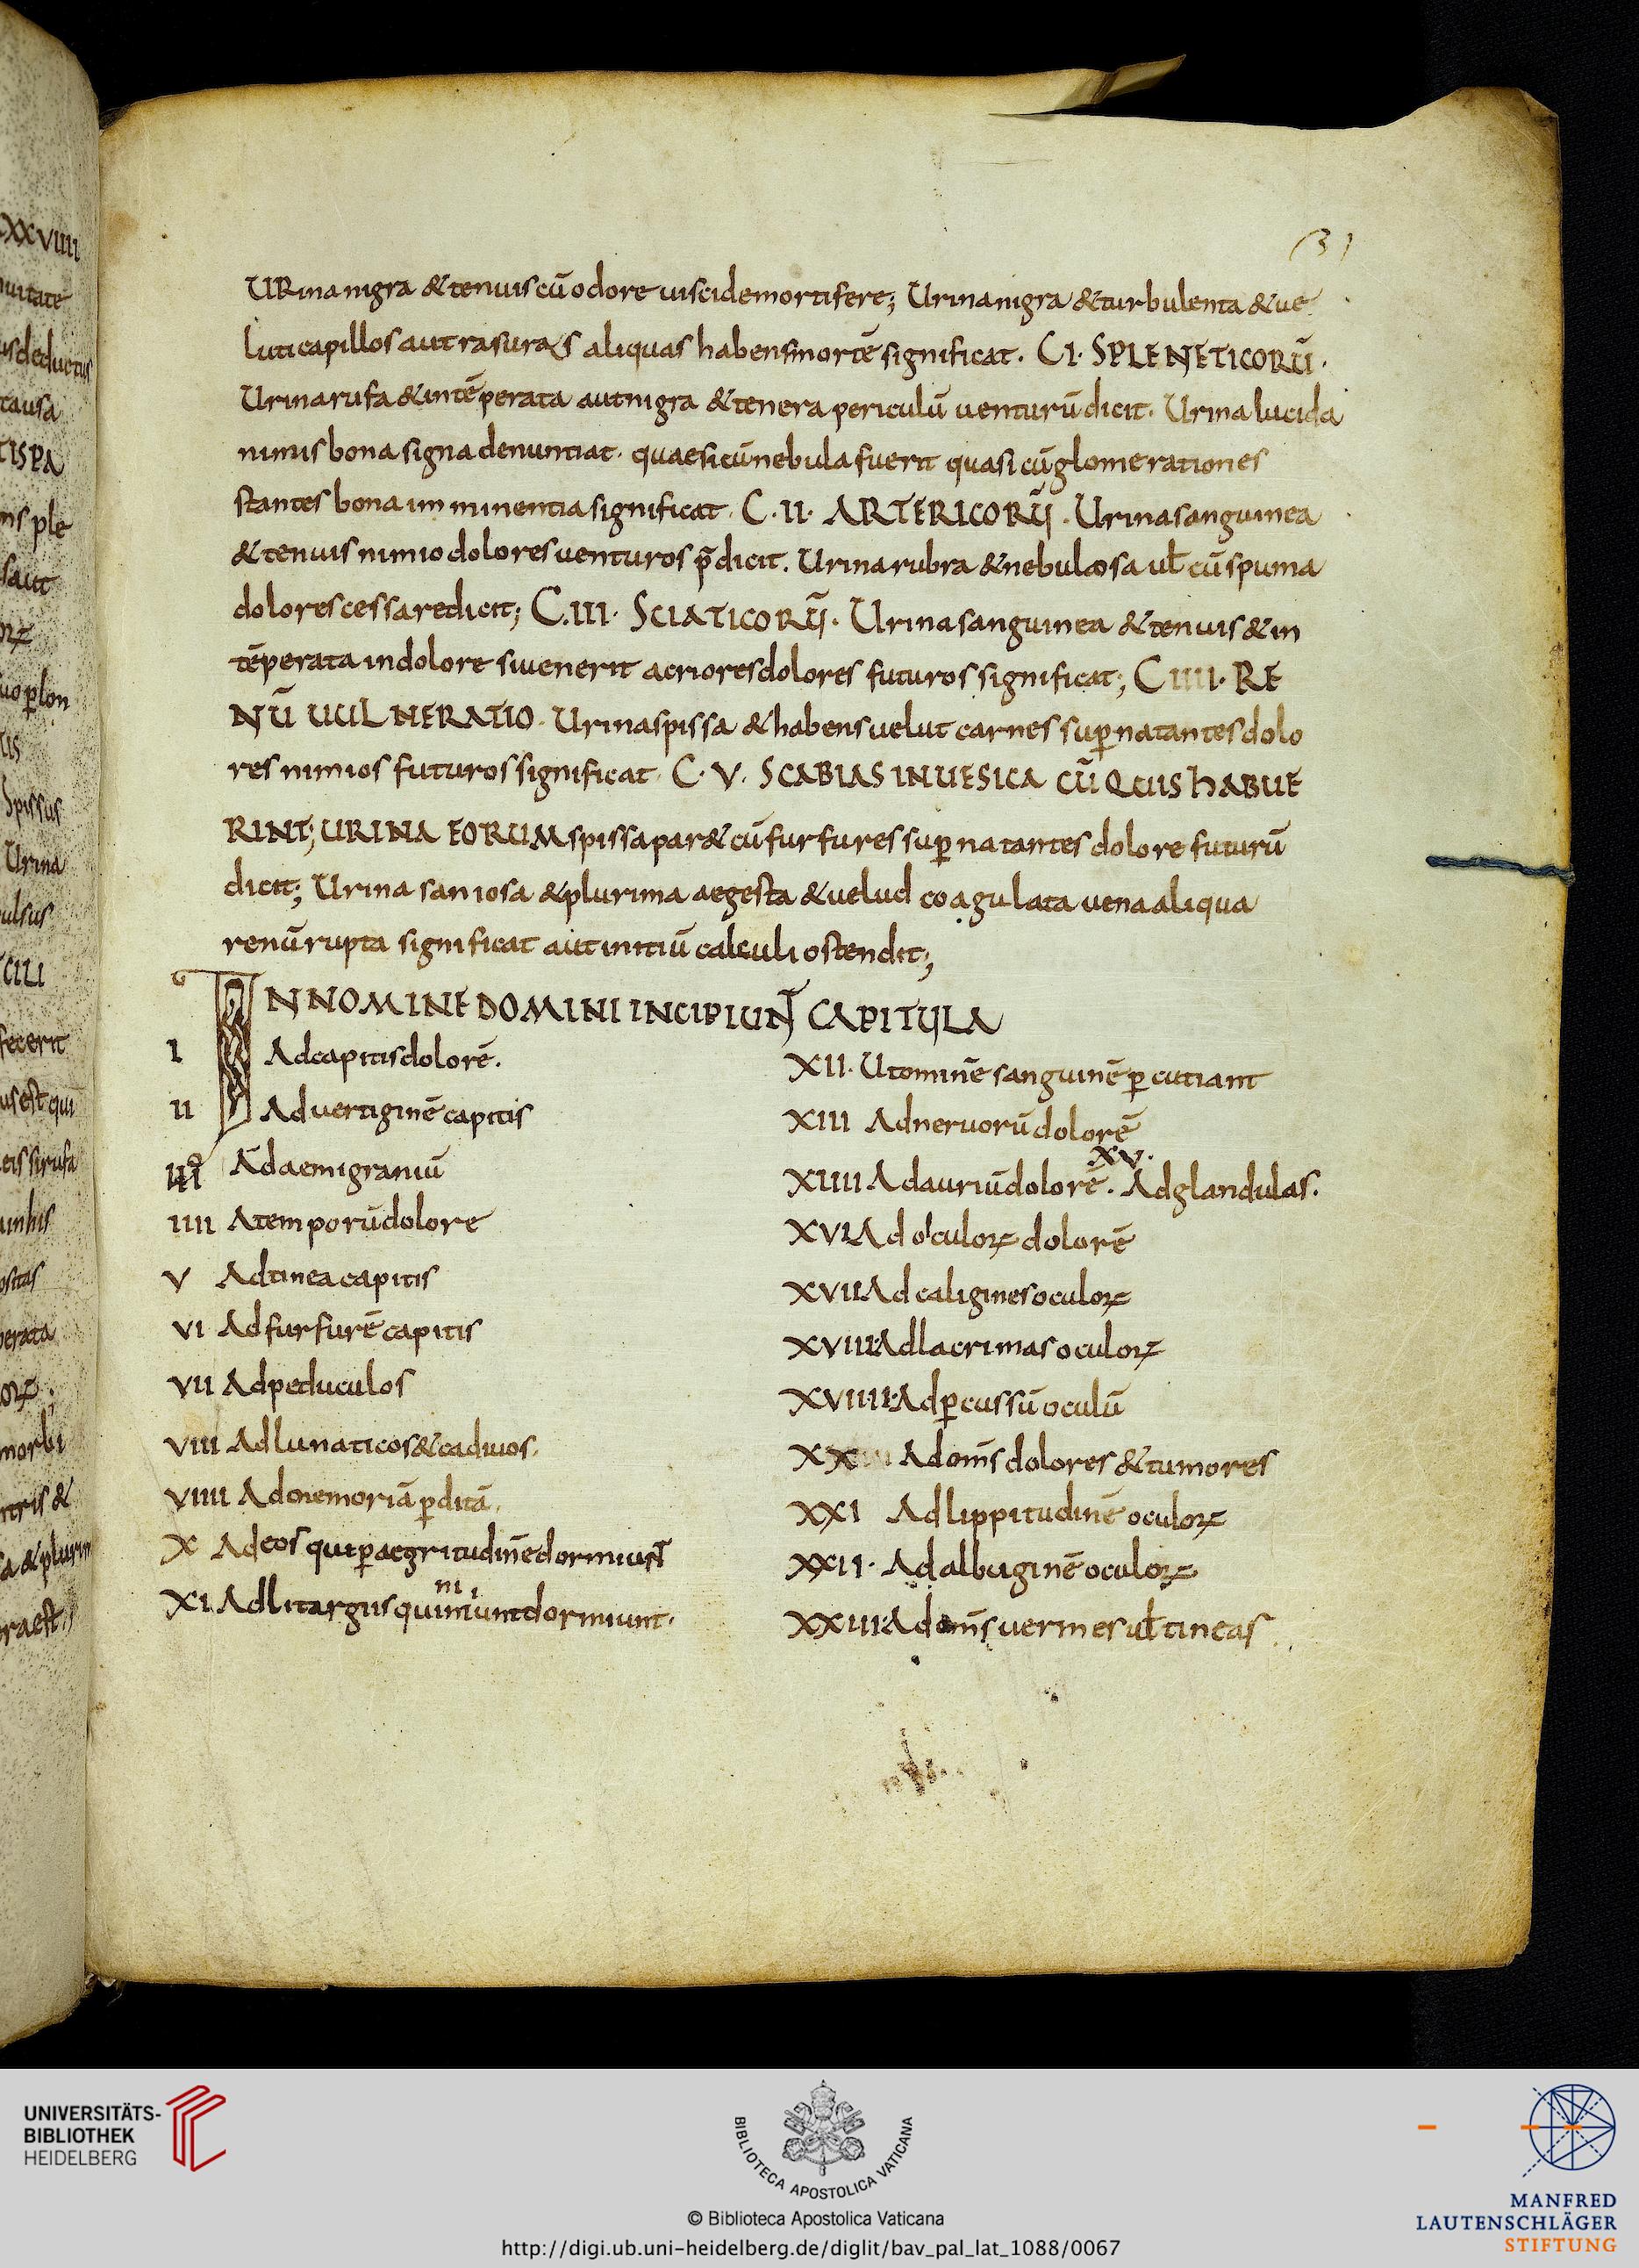 (31
URina nigra & tenuis cū odore uiscide mortifere; Urina nigra & turbulenta & ue
luti capillos aut rasuras aliquas habens mortē significat. CI. SPLENETICORŪ.
Urina rufa & intēperata aut nigra & tenera periculū uenturū dicit. Urina lucida
nimis bona signa denuntiat. quae si cū nebula fuerit quasi cū glomerationes
stantes bona imminentia significat. C.II. ARTERICORŪ. Urina sanguinea
& tenuis nimio dolores uenturos p̄dicit. Urina rubra & nebulosa ul̄ cū spuma
dolores cessare dicit; C.III. SCIATICORŪ. Urina sanguinea & tenuis & in
tēperata in dolore si uenerit acriores dolores futuros significat; CIIII. RE
NŪ UULNERATIO. Urina spissa & habens uelut carnes sup̲natantes dolo
res nimios futuros significat. C.V. SCABIAS IN UESICA CŪ QCUIS HABUE
RINT; URINA EORUM spissa par& cū furfures sup̲natantes dolore futurū
dicit; Urina saniosa & plurima aegesta & uelud coagulata uena aliqua
renū rupta significat aut initiū calculi ostendit;
IN NOMINE DOMINI INCIPIUNT CAPITULA
I Ad capitis dolorē.
II Ad uertiginē capitis
III Ad aemigraniū
IIII A temporū dolore
V Ad tinea capitis
VI Ad furfurē capitis
VII Ad peduculos
VIII Ad lunaticos & cadiuos.
VIIII Ad memoriā p̲ditā.
X Ad eos qui p̲ aegritudinē dormiunt
XI. Ad litargus qui nimiunt dormiunt.
XII. Ut ominē sanguinē p̲cutiant
XIII Ad neruorū dolorē
XIIII Ad auriū dolorē. XV. Ad glandulas.
XVI Ad oculoꝝ dolorē
XVII Ad caligines oculoꝝ
XVIII Ad lacrimas oculoꝝ
XVIIII Ad p̲cussū oculū
XX Ad om̄s dolores & tumores
XXI Ad lippitudinē oculoꝝ
XXII. Ad albuginē oculoꝝ
XXIII Ad om̄s uermes ul̄ tineas
UNIVERSITÄTS-
BIBLIOTHEK
HEIDELBERG
BIBLIOTECA APOSTOLICA VATICANA
© Biblioteca Apostolica Vaticana
http://digi.ub.uni-heidelberg.de/diglit/bav_pal_lat_1088/0067
MANFRED
LAUTENSCHLÄGER
STIFTUNG